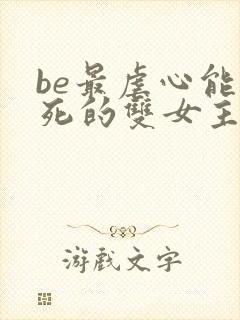 be最虐心能
死的雙女主
游戲文字